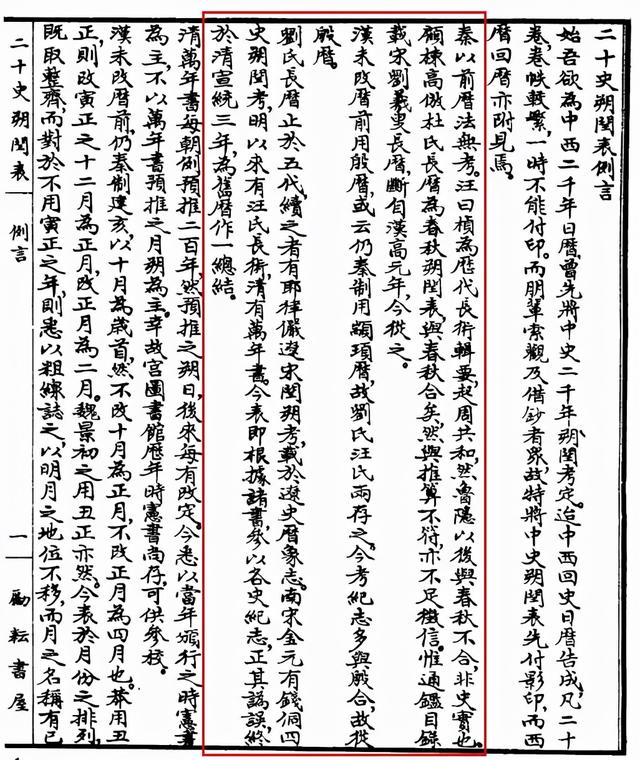 二十史朔閏表例言
始吾欲為中西二千年日曆,曾先將中史二千年朔閏考定。迨中西回史日曆告成,凡二十
卷,卷帙較繁,一時不能付印。而朋輩索觀及借鈔者眾,故特將中史朔閏表先付影印,而西
曆回曆亦附見焉。
秦以前曆法無考。汪曰楨為歷代長術輯要,起周共和,然魯隱以後與春秋不合,非史實也。
顧棟高倣杜氏長曆為春秋朔閏表,與春秋合矣,然與推算不符,亦不足徵信。惟通鑑目錄
載宋劉羲叟長曆,斷自漢高元年,今從之。
漢未改曆前用殷曆,或云仍秦制用顓頊曆,故劉氏汪氏兩存之。今考紀志多與殷合,故從
殷曆。
劉氏長曆止於五代,續之者有耶律儼遼宋閏朔考,載於遼史曆象志。南宋金元有錢侗四
史朔閏考,明以來有汪氏長術,清有萬年書。今表即根據諸書,參以各史紀志,正其譌誤,終
於清宣統三年,為舊曆作一總結。
清萬年書每朝例預推二百年,然預推之朔日,後來每有改定。今悉以當年頒行之時憲書
為主,不以萬年書預推之月朔為主。幸故宮圖書館歷年時憲書尚存,可供參校。
漢未改曆前,仍秦制建亥,以十月為歲首,然不改十月為正月,不改正月為四月也。莽用丑
正,則改寅正之十二月為正月,改正月為二月。魏景初之用丑正亦然。今表於月份之排列,
既取整齊,而對於不用寅正之年,則悉以粗線誌之,以明月之地位不移,而月之名稱有已
二十史朔閏表 例言 一 勵耘書屋